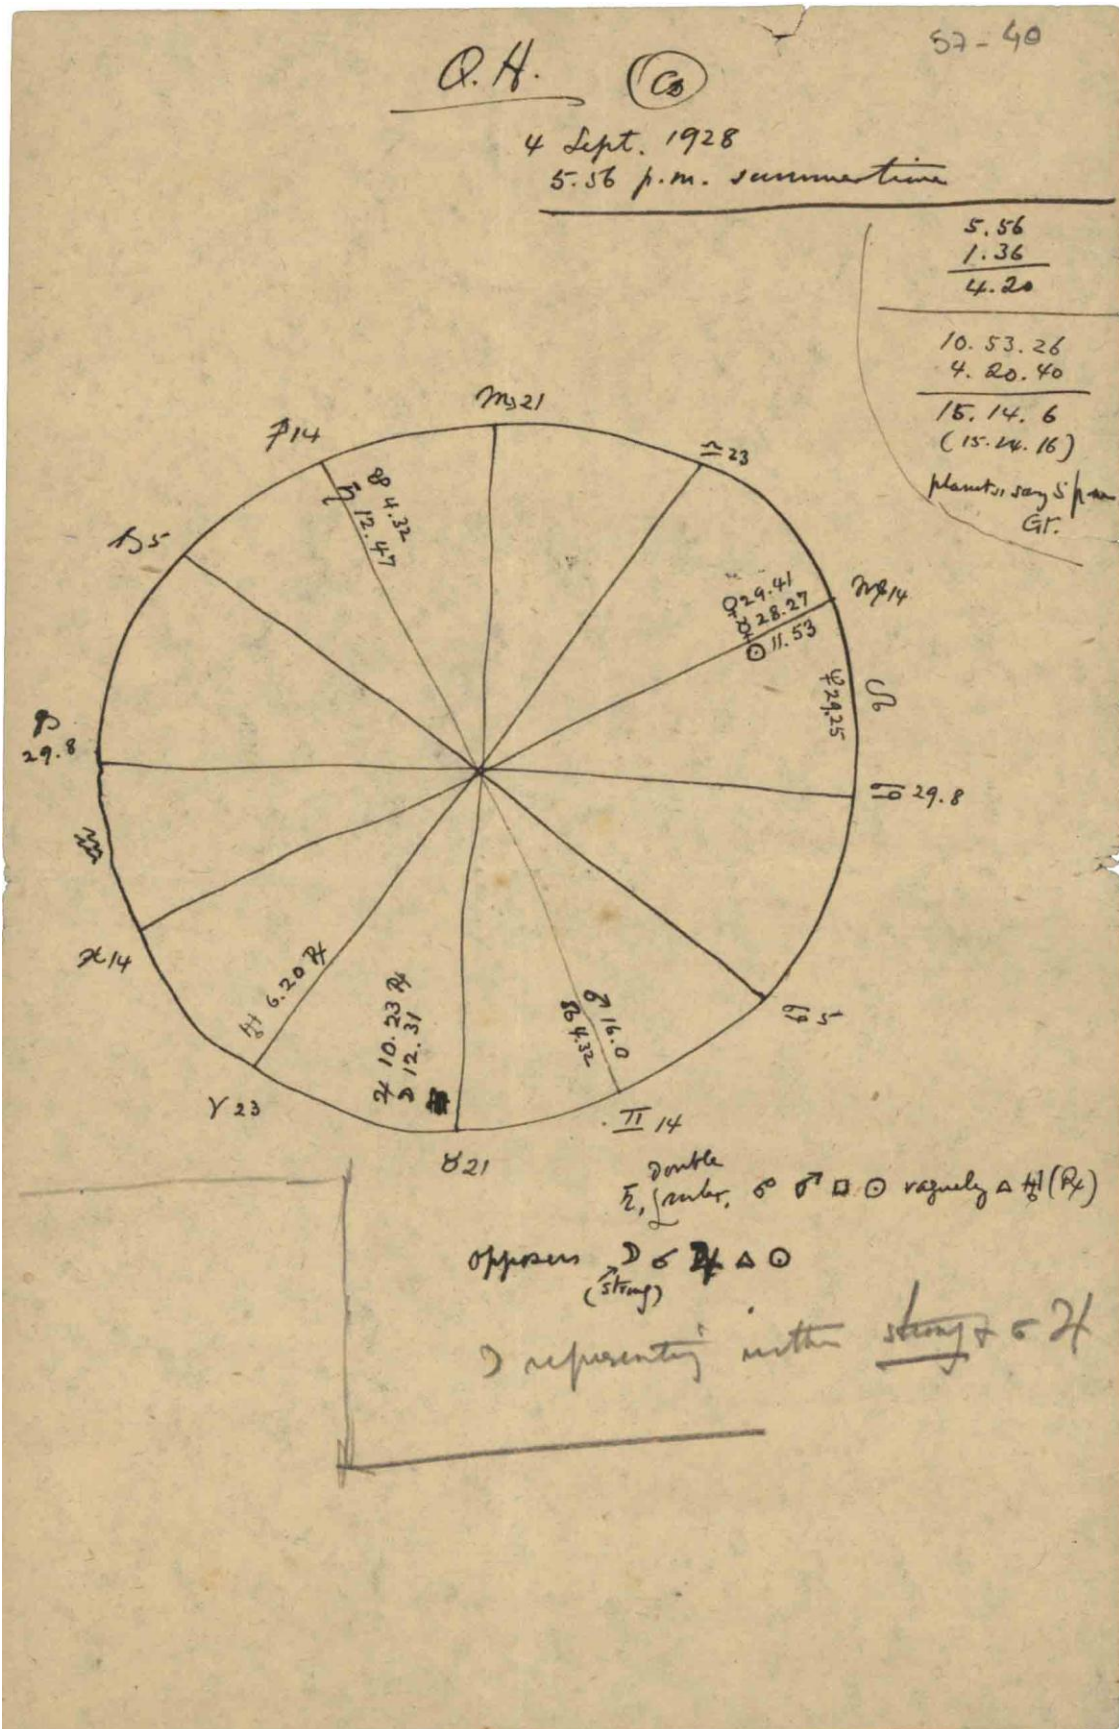 57-40
Q.H.
4 Sept. 1928
5.56 p.m. summertime
5.56
1.36
4.20
10.53.26
4.20.40
15.14.6
(15.14.16)
planets, say 5 pm
Gr.
♏21
♐14
♎23
☋ 4.32
♄ 12.47
♑5
♀29.41
☿28.27
☉11.53
♍14
♆29.25
♌
♑
29.8
♋29.8
♒
♓14
♅ 6.20 ℞
♃ 10.23 ℞
☽ 12.31
♂16.0
☊4.32
♋5
♈23
♊14
♉21
Double
♄, ruler, ☍ ♂ □ ☉ vaguely △ ♅(℞)
opposers ☽ ☌ ♃ △ ☉
(strong)
☽ representing strong + ☌ ♃